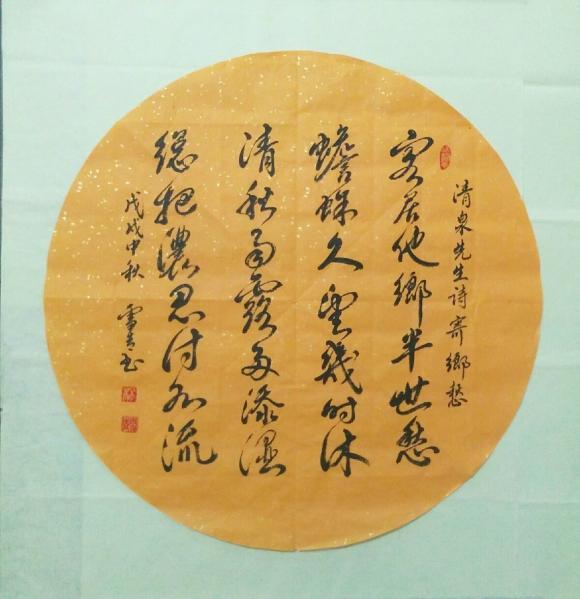 清泉先生詩寄鄉愁
客居他鄉半世愁
蟾蜍久望幾時休
清秋雨露多添湿
總把濃思付水流
戊戌中秋 书